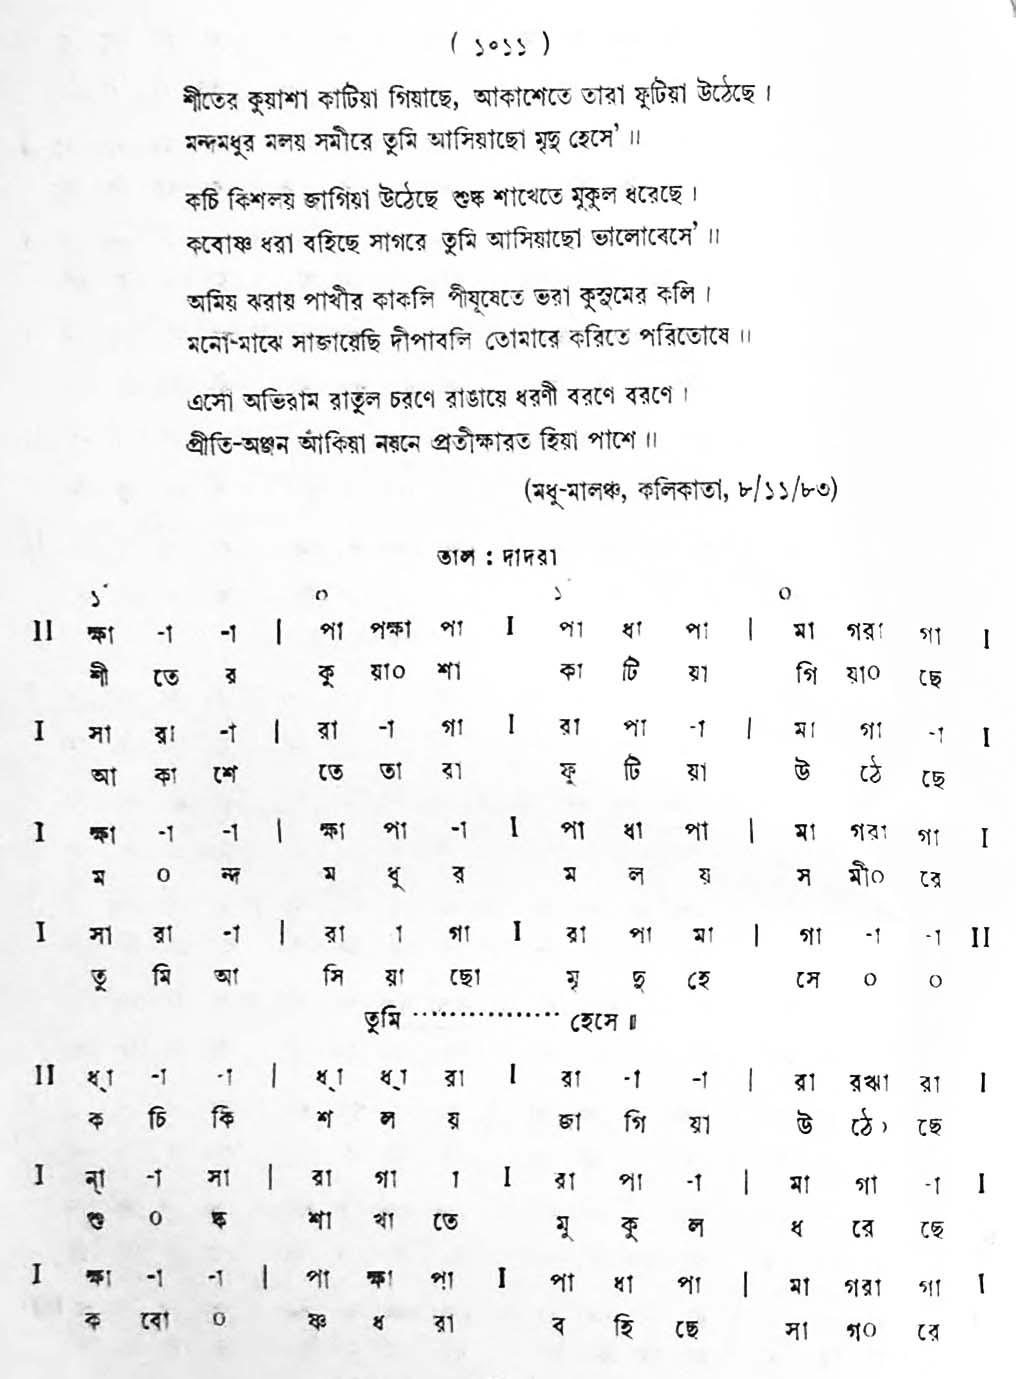 ( ১০১১ )
শীতের কুয়াশা কাটিয়া গিয়াছে, আকাশেতে তারা ফুটিয়া উঠেছে ।
মন্দমধুর মলয় সমীরে তুমি আসিয়াছো মৃদু হেসে' ॥
কচি কিশলয় জাগিয়া উঠেছে শুষ্ক শাখেতে মুকুল ধরেছে ।
কবোষ্ণ ধরা বহিছে সাগরে তুমি আসিয়াছো ভালোবেসে' ॥
অমিয় ঝরায় পাখীর কাকলি পীযূষেতে ভরা কুসুমের কলি ।
মনো-মাঝে সাজায়েছি দীপাবলি তোমারে করিতে পরিতোষে ॥
এসো অভিরাম রাতুল চরণে রাঙায়ে ধরণী বরণে বরণে ।
প্রীতি-অঞ্জন আঁকিয়া নয়নে প্রতীক্ষারত হিয়া পাশে ॥
(মধু-মালঞ্চ, কলিকাতা, ৮/১১/৮৩)
তাল : দাদরা
১ ০ ১ ০
II ক্ষা -া -া | পা পক্ষা পা I পা ধা পা | মা গরা গা I
শী তে র কু য়া০ শা কা টি য়া গি য়া০ ছে
I সা রা -া | রা -া গা I রা পা -া | মা গা -া I
আ কা শে তে তা রা ফু টি য়া উ ঠে ছে
I ক্ষা -া -া | ক্ষা পা -া I পা ধা পা | মা গরা গা I
ম ০ ন্দ ম ধু র ম ল য় স মী০ রে
I সা রা -া | রা া গা I রা পা মা | গা -া -া II
তু মি আ সি য়া ছো মৃ দু হে সে ০ ০
তুমি ················ হেসে ॥
II ধ্া -া -া | ধ্া ধ্া রা I রা -া -া | রা রঋা রা I
ক চি কি শ ল য় জা গি য়া উ ঠে০ ছে
I ন্া -া সা | রা গা া I রা পা -া | মা গা -া I
শু ০ ষ্ক শা খা তে মু কু ল ধ রে ছে
I ক্ষা -া -া | পা ক্ষা পা I পা ধা পা | মা গরা গা I
ক বো ০ ষ্ণ ধ রা ব হি ছে সা গ০ রে